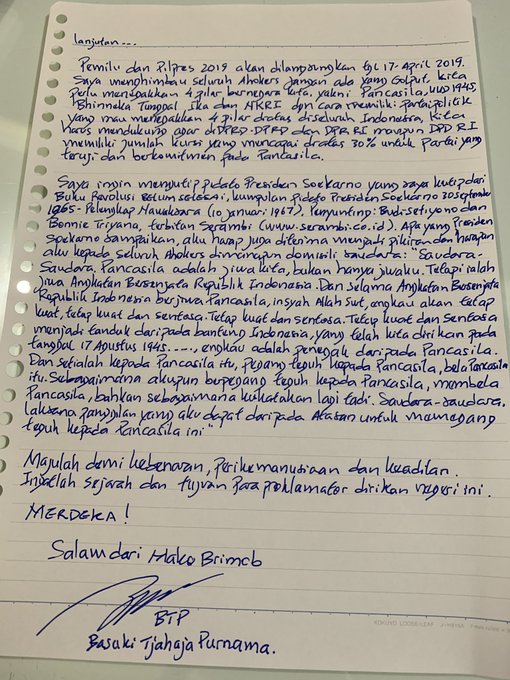 lanjutan...
Pemilu dan Pilpres 2019 akan dilangsungkan tgl 17-April 2019.
Saya menghimbau seluruh Ahokers jangan ada yang Golput. Kita
perlu menegakkan 4 pilar bernegara kita, yakni Pancasila, UUD 1945,
Bhinneka Tunggal Ika dan NKRI dgn cara memiliki partai politik
yang mau menegakkan 4 pilar diatas diseluruh Indonesia. Kita
harus mendukung agar di DPRD-DPRD dan DPR RI maupun DPD RI
memiliki jumlah kursi yang mencapai diatas 30% untuk partai yang
teruji dan berkomitmen pada Pancasila.
Saya ingin mengutip pidato Presiden Soekarno yang saya kutip dari
Buku Revolusi belum selesai, kumpulan pidato Presiden Soekarno 30 September
1965 - Pelengkap Nawaksara (10 januari 1967). Penyunting: Budi setiyono dan
Bonnie Triyana, terbitan Serambi (www.serambi.co.id). Apa yang Presiden
Soekarno sampaikan, aku harap juga diterima menjadi pikiran dan harapan
aku kepada seluruh Ahokers dimanapun domisili saudara: "Saudara-
Saudara. Pancasila adalah jiwa kita, bukan hanya jiwaku. Tetapi ialah
jiwa Angkatan Bersenjata Republik Indonesia. Dan selama Angkatan Bersenjata
Republik Indonesia berjiwa Pancasila, insyah Allah Swt, engkau akan tetap
kuat, tetap kuat dan sentosa. Tetap kuat dan sentosa. Tetap kuat dan sentosa
menjadi tanduk daripada banteng Indonesia, yang telah kita dirikan pada
tanggal 17 Agustus 1945....., engkau adalah penegak daripada Pancasila.
Dan setialah kepada Pancasila itu, pegang teguh kepada Pancasila, bela Pancasila
itu. Sebagaimana akupun berpegang teguh kepada Pancasila, membela
Pancasila, bahkan sebagaimana kukatakan lagi tadi. Saudara-saudara.
laksana panggilan yang aku dapat daripada Atasan untuk memegang
teguh kepada Pancasila ini"
Majulah demi kebenaran, perikemanusiaan dan keadilan.
Ingatlah sejarah dan tujuan para proklamator dirikan negeri ini.
MERDEKA!
Salam dari Mako Brimob
BTP
Basuki Tjahaja Purnama.
KOKUYO LOOSE-LEAF